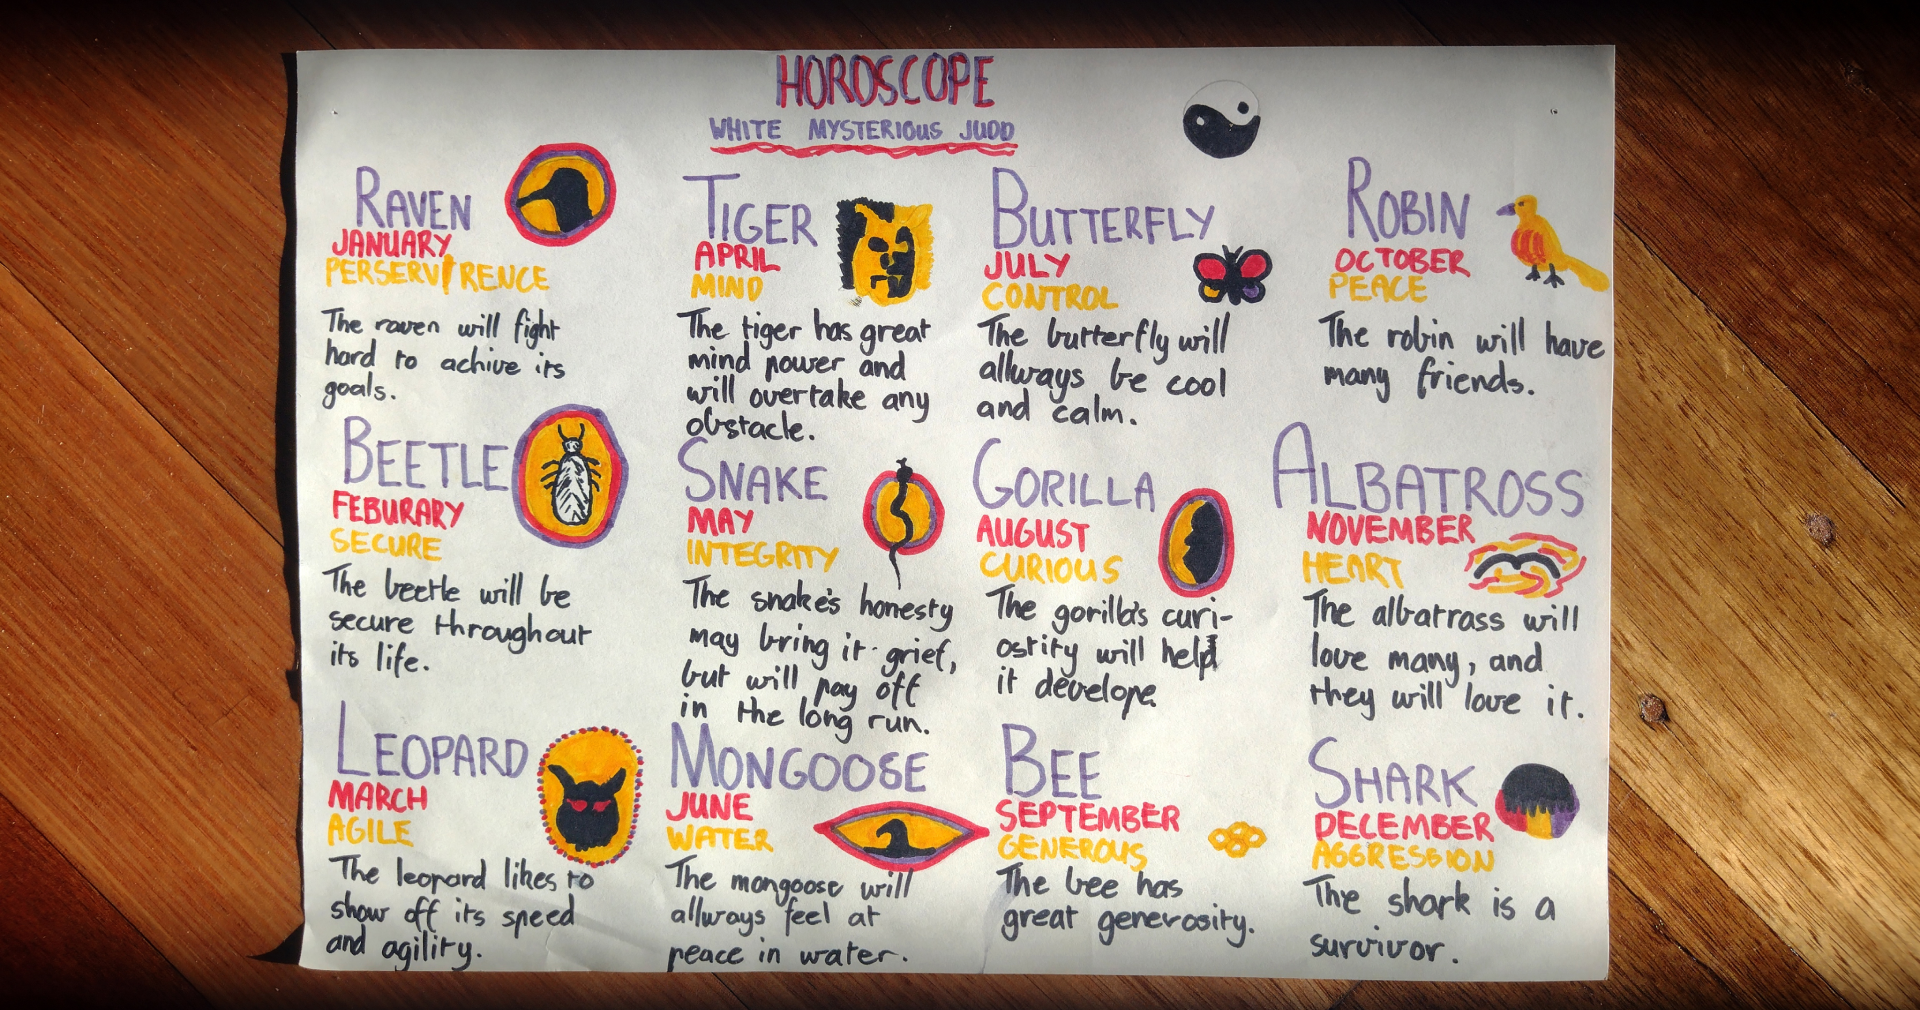 HOROSCOPE
WHITE MYSTERIOUS JUDD
RAVEN
JANUARY
PERSERVIRENCE
The raven will fight
hard to achive its
goals.
BEETLE
FEBURARY
SECURE
The beetle will be
secure throughout
its life.
LEOPARD
MARCH
AGILE
The leopard likes to
show off its speed
and agility.
TIGER
APRIL
MIND
The tiger has great
mind power and
will overtake any
obstacle.
SNAKE
MAY
INTEGRITY
The snake's honesty
may bring it grief,
but will pay off
in the long run.
MONGOOSE
JUNE
WATER
The mongoose will
allways feel at
peace in water.
BUTTERFLY
JULY
CONTROL
The butterfly will
allways be cool
and calm.
GORILLA
AUGUST
CURIOUS
The gorilla's curi-
ostity will help
it develope.
BEE
SEPTEMBER
GENEROUS
The bee has
great generosity.
ROBIN
OCTOBER
PEACE
The robin will have
many friends.
ALBATROSS
NOVEMBER
HEART
The albatrass will
love many, and
they will love it.
SHARK
DECEMBER
AGGRESSION
The shark is a
survivor.